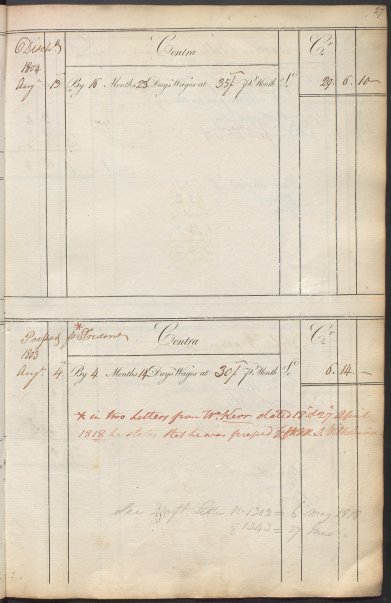 27
Disch^d Contra C^r
1804
Aug^t 13 By 16 Months 23 Days Wages at 35/ p^r Month £ 29 " 6 " 10
Press'd p^r *Trident Contra C^r
1803
Aug^t 4 By 4 Months 14 Days Wages at 30/ p^r Month £ 6 " 14 " —
* in two letters from W^m Kerr dated 18^th & 27 April
1818 he states that he was pressed
See Letter No 1302 = 6 May 1818
& 1343 = 27 June "